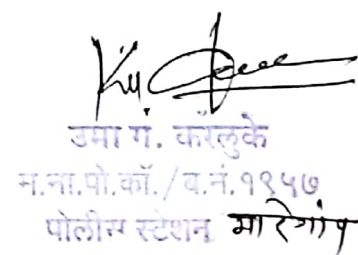 उमा गं. करलुके
म.ना.पो.कॉ./ब.नं.१९५७
पोलीस स्टेशन मारेगांव